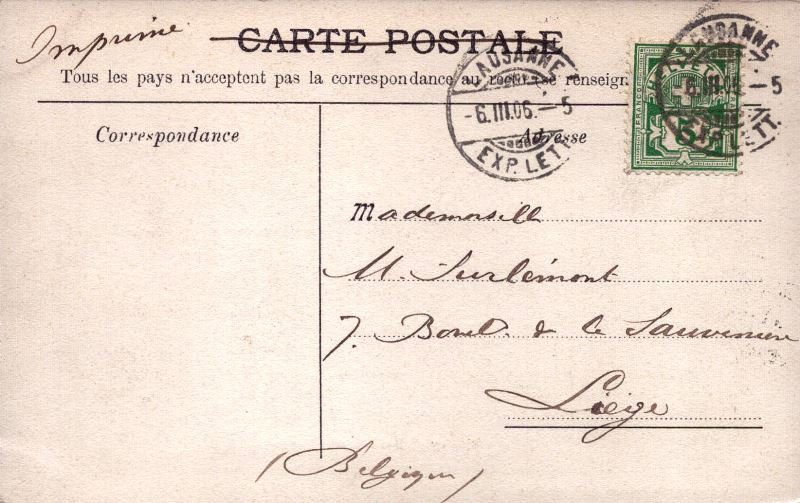 Imprimé.
CARTE POSTALE
Tous les pays n'acceptent pas la correspondance au re
renseign
LAUSANNE
-6.III.06.-5
EXP. LETT.
LAUSANNE
-6.III.06.-5
EXP. LETT.
FRANCO
5
Correspondance
Adresse
Mademoiselle
M. Surlémont
7. Boul. d. la Sauvenière
Liège
(Belgique)